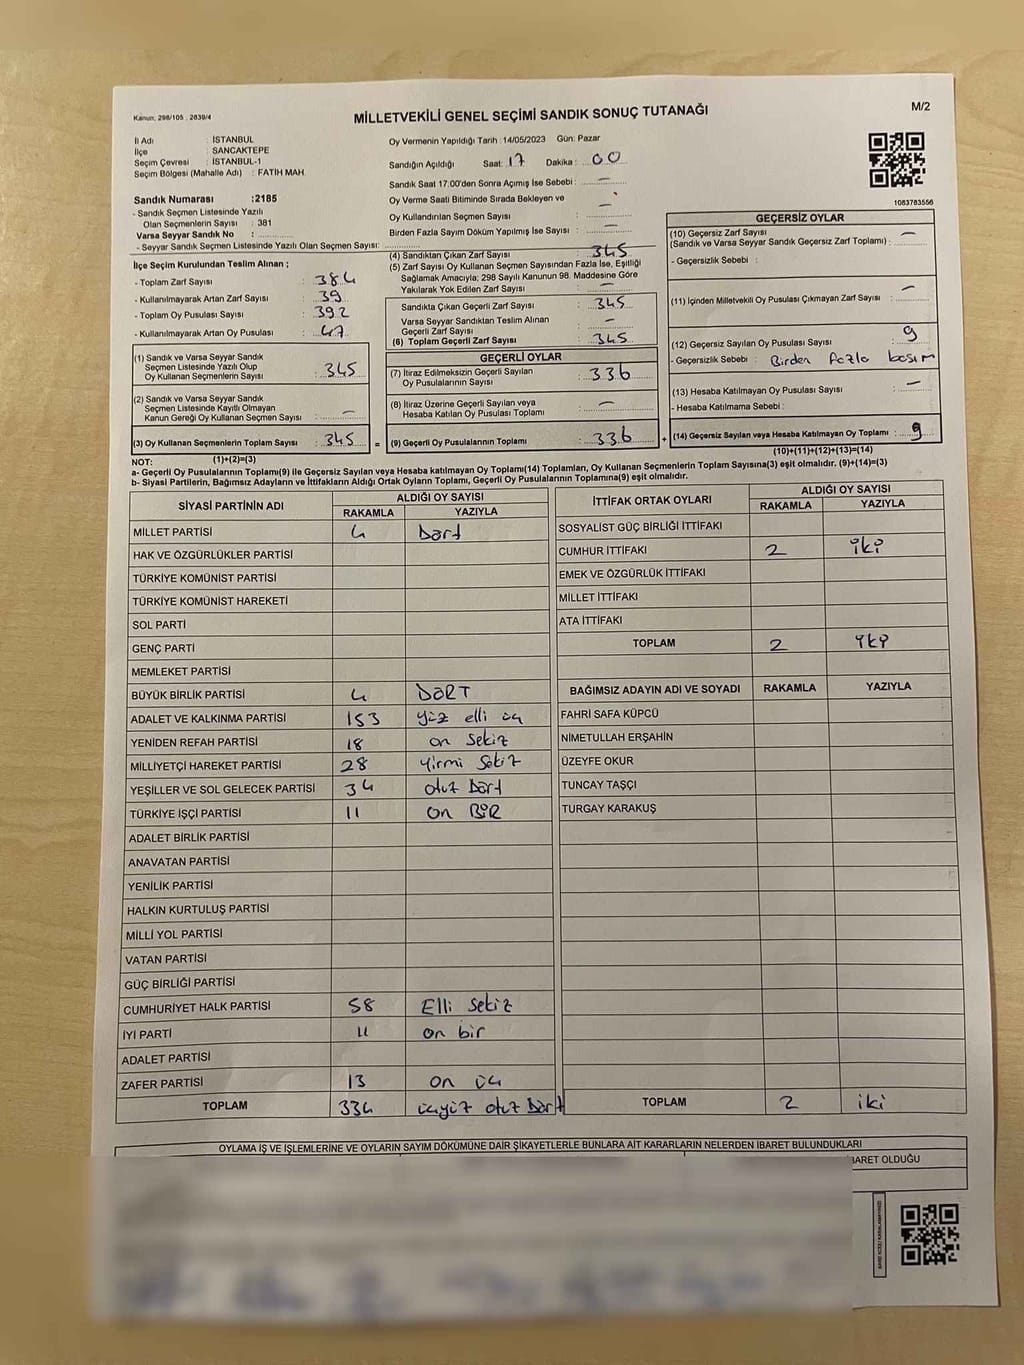 Kanun: 298/105 , 2839/4
MİLLETVEKİLİ GENEL SEÇİMİ SANDIK SONUÇ TUTANAĞI
M/2
İl Adı : İSTANBUL
İlçe : SANCAKTEPE
Seçim Çevresi : İSTANBUL-1
Seçim Bölgesi (Mahalle Adı) : FATİH MAH.
Sandık Numarası :2185
- Sandık Seçmen Listesinde Yazılı
Olan Seçmenlerin Sayısı : 381
Varsa Seyyar Sandık No :
- Seyyar Sandık Seçmen Listesinde Yazılı Olan Seçmen Sayısı:
Oy Vermenin Yapıldığı Tarih : 14/05/2023 Gün: Pazar
Sandığın Açıldığı Saat: 17 Dakika : 00
Sandık Saat 17:00'den Sonra Açımış İse Sebebi : —
Oy Verme Saati Bitiminde Sırada Bekleyen ve
Oy Kullandırılan Seçmen Sayısı : —
Birden Fazla Sayım Döküm Yapılmış İse Sayısı : —
1083783556
İlçe Seçim Kurulundan Teslim Alınan ;
- Toplam Zarf Sayısı : 384
- Kullanılmayarak Artan Zarf Sayısı : 39
- Toplam Oy Pusulası Sayısı : 392
- Kullanılmayarak Artan Oy Pusulası : 47
(1) Sandık ve Varsa Seyyar Sandık
Seçmen Listesinde Yazılı Olup
Oy Kullanan Seçmenlerin Sayısı : 345
(2) Sandık ve Varsa Seyyar Sandık
Seçmen Listesinde Kayıtlı Olmayan
Kanun Gereği Oy Kullanan Seçmen Sayısı : —
(3) Oy Kullanan Seçmenlerin Toplam Sayısı : 345 =
(4) Sandıktan Çıkan Zarf Sayısı : 345
(5) Zarf Sayısı Oy Kullanan Seçmen Sayısından Fazla İse, Eşitliği
Sağlamak Amacıyla; 298 Sayılı Kanunun 98. Maddesine Göre
Yakılarak Yok Edilen Zarf Sayısı : —
Sandıkta Çıkan Geçerli Zarf Sayısı : 345
Varsa Seyyar Sandıktan Teslim Alınan
Geçerli Zarf Sayısı : —
(6) Toplam Geçerli Zarf Sayısı : 345
GEÇERLİ OYLAR
(7) İtiraz Edilmeksizin Geçerli Sayılan
Oy Pusulalarının Sayısı : 336
(8) İtiraz Üzerine Geçerli Sayılan veya
Hesaba Katılan Oy Pusulası Toplamı : —
(9) Geçerli Oy Pusulalarının Toplamı : 336 +
GEÇERSİZ OYLAR
(10) Geçersiz Zarf Sayısı
(Sandık ve Varsa Seyyar Sandık Geçersiz Zarf Toplamı) : —
- Geçersizlik Sebebi :
(11) İçinden Milletvekili Oy Pusulası Çıkmayan Zarf Sayısı : —
(12) Geçersiz Sayılan Oy Pusulası Sayısı : 9
- Geçersizlik Sebebi : Birden fazla basım
(13) Hesaba Katılmayan Oy Pusulası Sayısı : —
- Hesaba Katılmama Sebebi :
(14) Geçersiz Sayılan veya Hesaba Katılmayan Oy Toplamı : 9
(10)+(11)+(12)+(13)=(14)
NOT: (1)+(2)=(3)
a- Geçerli Oy Pusulalarının Toplamı(9) ile Geçersiz Sayılan veya Hesaba katılmayan Oy Toplamı(14) Toplamları, Oy Kullanan Seçmenlerin Toplam Sayısına(3) eşit olmalıdır. (9)+(14)=(3)
b- Siyasi Partilerin, Bağımsız Adayların ve İttifakların Aldığı Oyların Toplamı, Geçerli Oy Pusulalarının Toplamına(9) eşit olmalıdır.
SİYASİ PARTİNİN ADI ALDIĞI OY SAYISI
RAKAMLA YAZIYLA
MİLLET PARTİSİ 4 Dört
HAK VE ÖZGÜRLÜKLER PARTİSİ
TÜRKİYE KOMÜNİST PARTİSİ
TÜRKİYE KOMÜNİST HAREKETİ
SOL PARTİ
GENÇ PARTİ
MEMLEKET PARTİSİ
BÜYÜK BİRLİK PARTİSİ 4 DÖRT
ADALET VE KALKINMA PARTİSİ 153 yüz elli üç
YENİDEN REFAH PARTİSİ 18 on sekiz
MİLLİYETÇİ HAREKET PARTİSİ 28 yirmi sekiz
YEŞİLLER VE SOL GELECEK PARTİSİ 34 otuz Dört
TÜRKİYE İŞÇİ PARTİSİ 11 on BİR
ADALET BİRLİK PARTİSİ
ANAVATAN PARTİSİ
YENİLİK PARTİSİ
HALKIN KURTULUŞ PARTİSİ
MİLLİ YOL PARTİSİ
VATAN PARTİSİ
GÜÇ BİRLİĞİ PARTİSİ
CUMHURİYET HALK PARTİSİ 58 Elli sekiz
İYİ PARTİ 11 on bir
ADALET PARTİSİ
ZAFER PARTİSİ 13 on üç
TOPLAM 334 üçyüz otuz Dört
İTTİFAK ORTAK OYLARI ALDIĞI OY SAYISI
RAKAMLA YAZIYLA
SOSYALİST GÜÇ BİRLİĞİ İTTİFAKI
CUMHUR İTTİFAKI 2 iki
EMEK VE ÖZGÜRLÜK İTTİFAKI
MİLLET İTTİFAKI
ATA İTTİFAKI
TOPLAM 2 iki
BAĞIMSIZ ADAYIN ADI VE SOYADI RAKAMLA YAZIYLA
FAHRİ SAFA KÜPCÜ
NİMETULLAH ERŞAHİN
ÜZEYFE OKUR
TUNCAY TAŞÇI
TURGAY KARAKUŞ
TOPLAM 2 iki
OYLAMA İŞ VE İŞLEMLERİNE VE OYLARIN SAYIM DÖKÜMÜNE DAİR ŞİKAYETLERLE BUNLARA AİT KARARLARIN NELERDEN İBARET BULUNDUKLARI
İBARET OLDUĞU